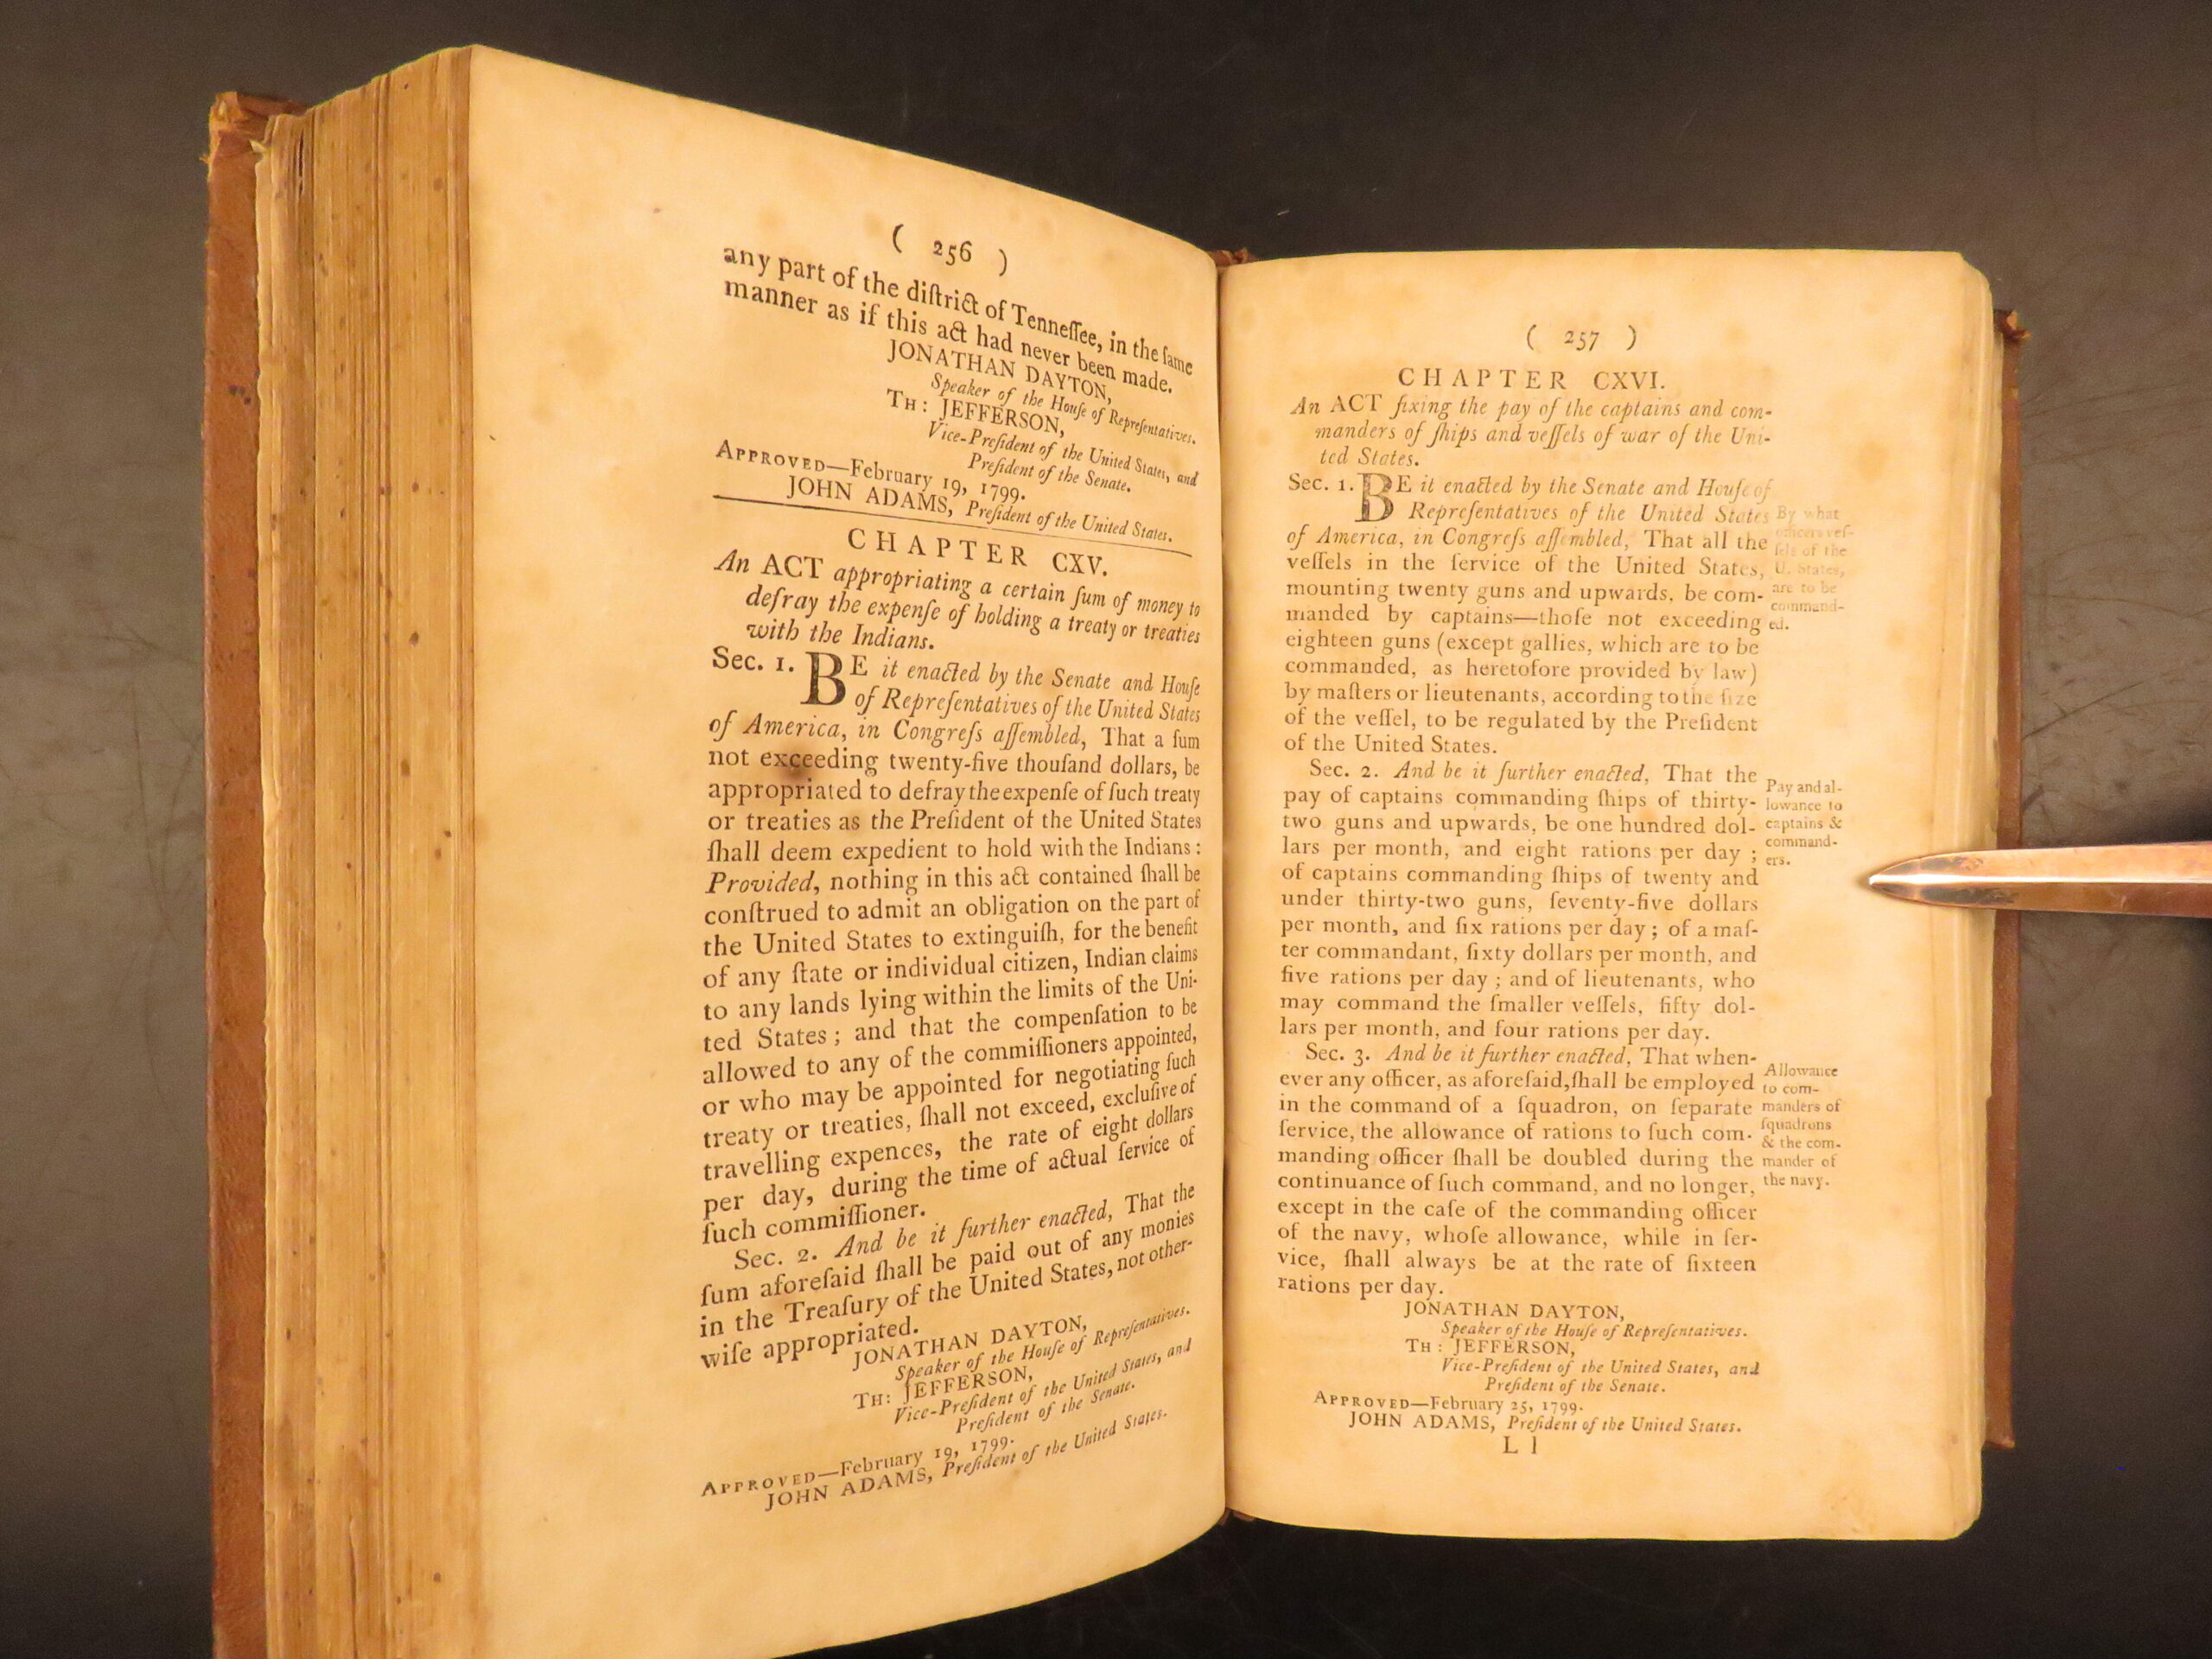 ( 256 )
any part of the diſtrict of Tenneſſee, in the ſame
manner as if this act had never been made.
JONATHAN DAYTON,
Speaker of the Houſe of Repreſentatives.
TH: JEFFERSON,
Vice-Preſident of the United States, and
Preſident of the Senate.
APPROVED—February 19, 1799.
JOHN ADAMS, Preſident of the United States.
CHAPTER CXV.
An ACT appropriating a certain ſum of money to
defray the expenſe of holding a treaty or treaties
with the Indians.
Sec. 1. BE it enacted by the Senate and Houſe
of Repreſentatives of the United States
of America, in Congreſs aſſembled, That a ſum
not exceeding twenty-five thouſand dollars, be
appropriated to defray the expenſe of ſuch treaty
or treaties as the Preſident of the United States
ſhall deem expedient to hold with the Indians :
Provided, nothing in this act contained ſhall be
conſtrued to admit an obligation on the part of
the United States to extinguiſh, for the benefit
of any ſtate or individual citizen, Indian claims
to any lands lying within the limits of the Uni-
ted States ; and that the compenſation to be
allowed to any of the commiſſioners appointed,
or who may be appointed for negotiating ſuch
treaty or treaties, ſhall not exceed, excluſive of
travelling expences, the rate of eight dollars
per day, during the time of actual ſervice of
ſuch commiſſioner.
Sec. 2. And be it further enacted, That the
ſum aforeſaid ſhall be paid out of any monies
in the Treaſury of the United States, not other-
wiſe appropriated.
JONATHAN DAYTON,
Speaker of the Houſe of Repreſentatives.
TH: JEFFERSON,
Vice-Preſident of the United States, and
Preſident of the Senate.
APPROVED—February 19, 1799.
JOHN ADAMS, Preſident of the United States.
( 257 )
CHAPTER CXVI.
An ACT fixing the pay of the captains and com-
manders of ſhips and veſſels of war of the Uni-
ted States.
Sec. 1. BE it enacted by the Senate and Houſe of
Repreſentatives of the United States
of America, in Congreſs aſſembled, That all the
veſſels in the ſervice of the United States,
mounting twenty guns and upwards, be com-
manded by captains—thoſe not exceeding
eighteen guns (except gallies, which are to be
commanded, as heretofore provided by law)
by maſters or lieutenants, according to the ſize
of the veſſel, to be regulated by the Preſident
of the United States.
By what
officers veſ-
ſels of the
U. States,
are to be
command-
ed.
Sec. 2. And be it further enacted, That the
pay of captains commanding ſhips of thirty-
two guns and upwards, be one hundred dol-
lars per month, and eight rations per day ;
of captains commanding ſhips of twenty and
under thirty-two guns, ſeventy-five dollars
per month, and ſix rations per day ; of a maſ-
ter commandant, ſixty dollars per month, and
five rations per day ; and of lieutenants, who
may command the ſmaller veſſels, fifty dol-
lars per month, and four rations per day.
Pay and al-
lowance to
captains &
command-
ers.
Sec. 3. And be it further enacted, That when-
ever any officer, as aforeſaid, ſhall be employed
in the command of a ſquadron, on ſeparate
ſervice, the allowance of rations to ſuch com-
manding officer ſhall be doubled during the
continuance of ſuch command, and no longer,
except in the caſe of the commanding officer
of the navy, whoſe allowance, while in ſer-
vice, ſhall always be at the rate of ſixteen
rations per day.
Allowance
to com-
manders of
ſquadrons
& the com-
mander of
the navy.
JONATHAN DAYTON,
Speaker of the Houſe of Repreſentatives.
TH: JEFFERSON,
Vice-Preſident of the United States, and
Preſident of the Senate.
APPROVED—February 25, 1799.
JOHN ADAMS, Preſident of the United States.
L l